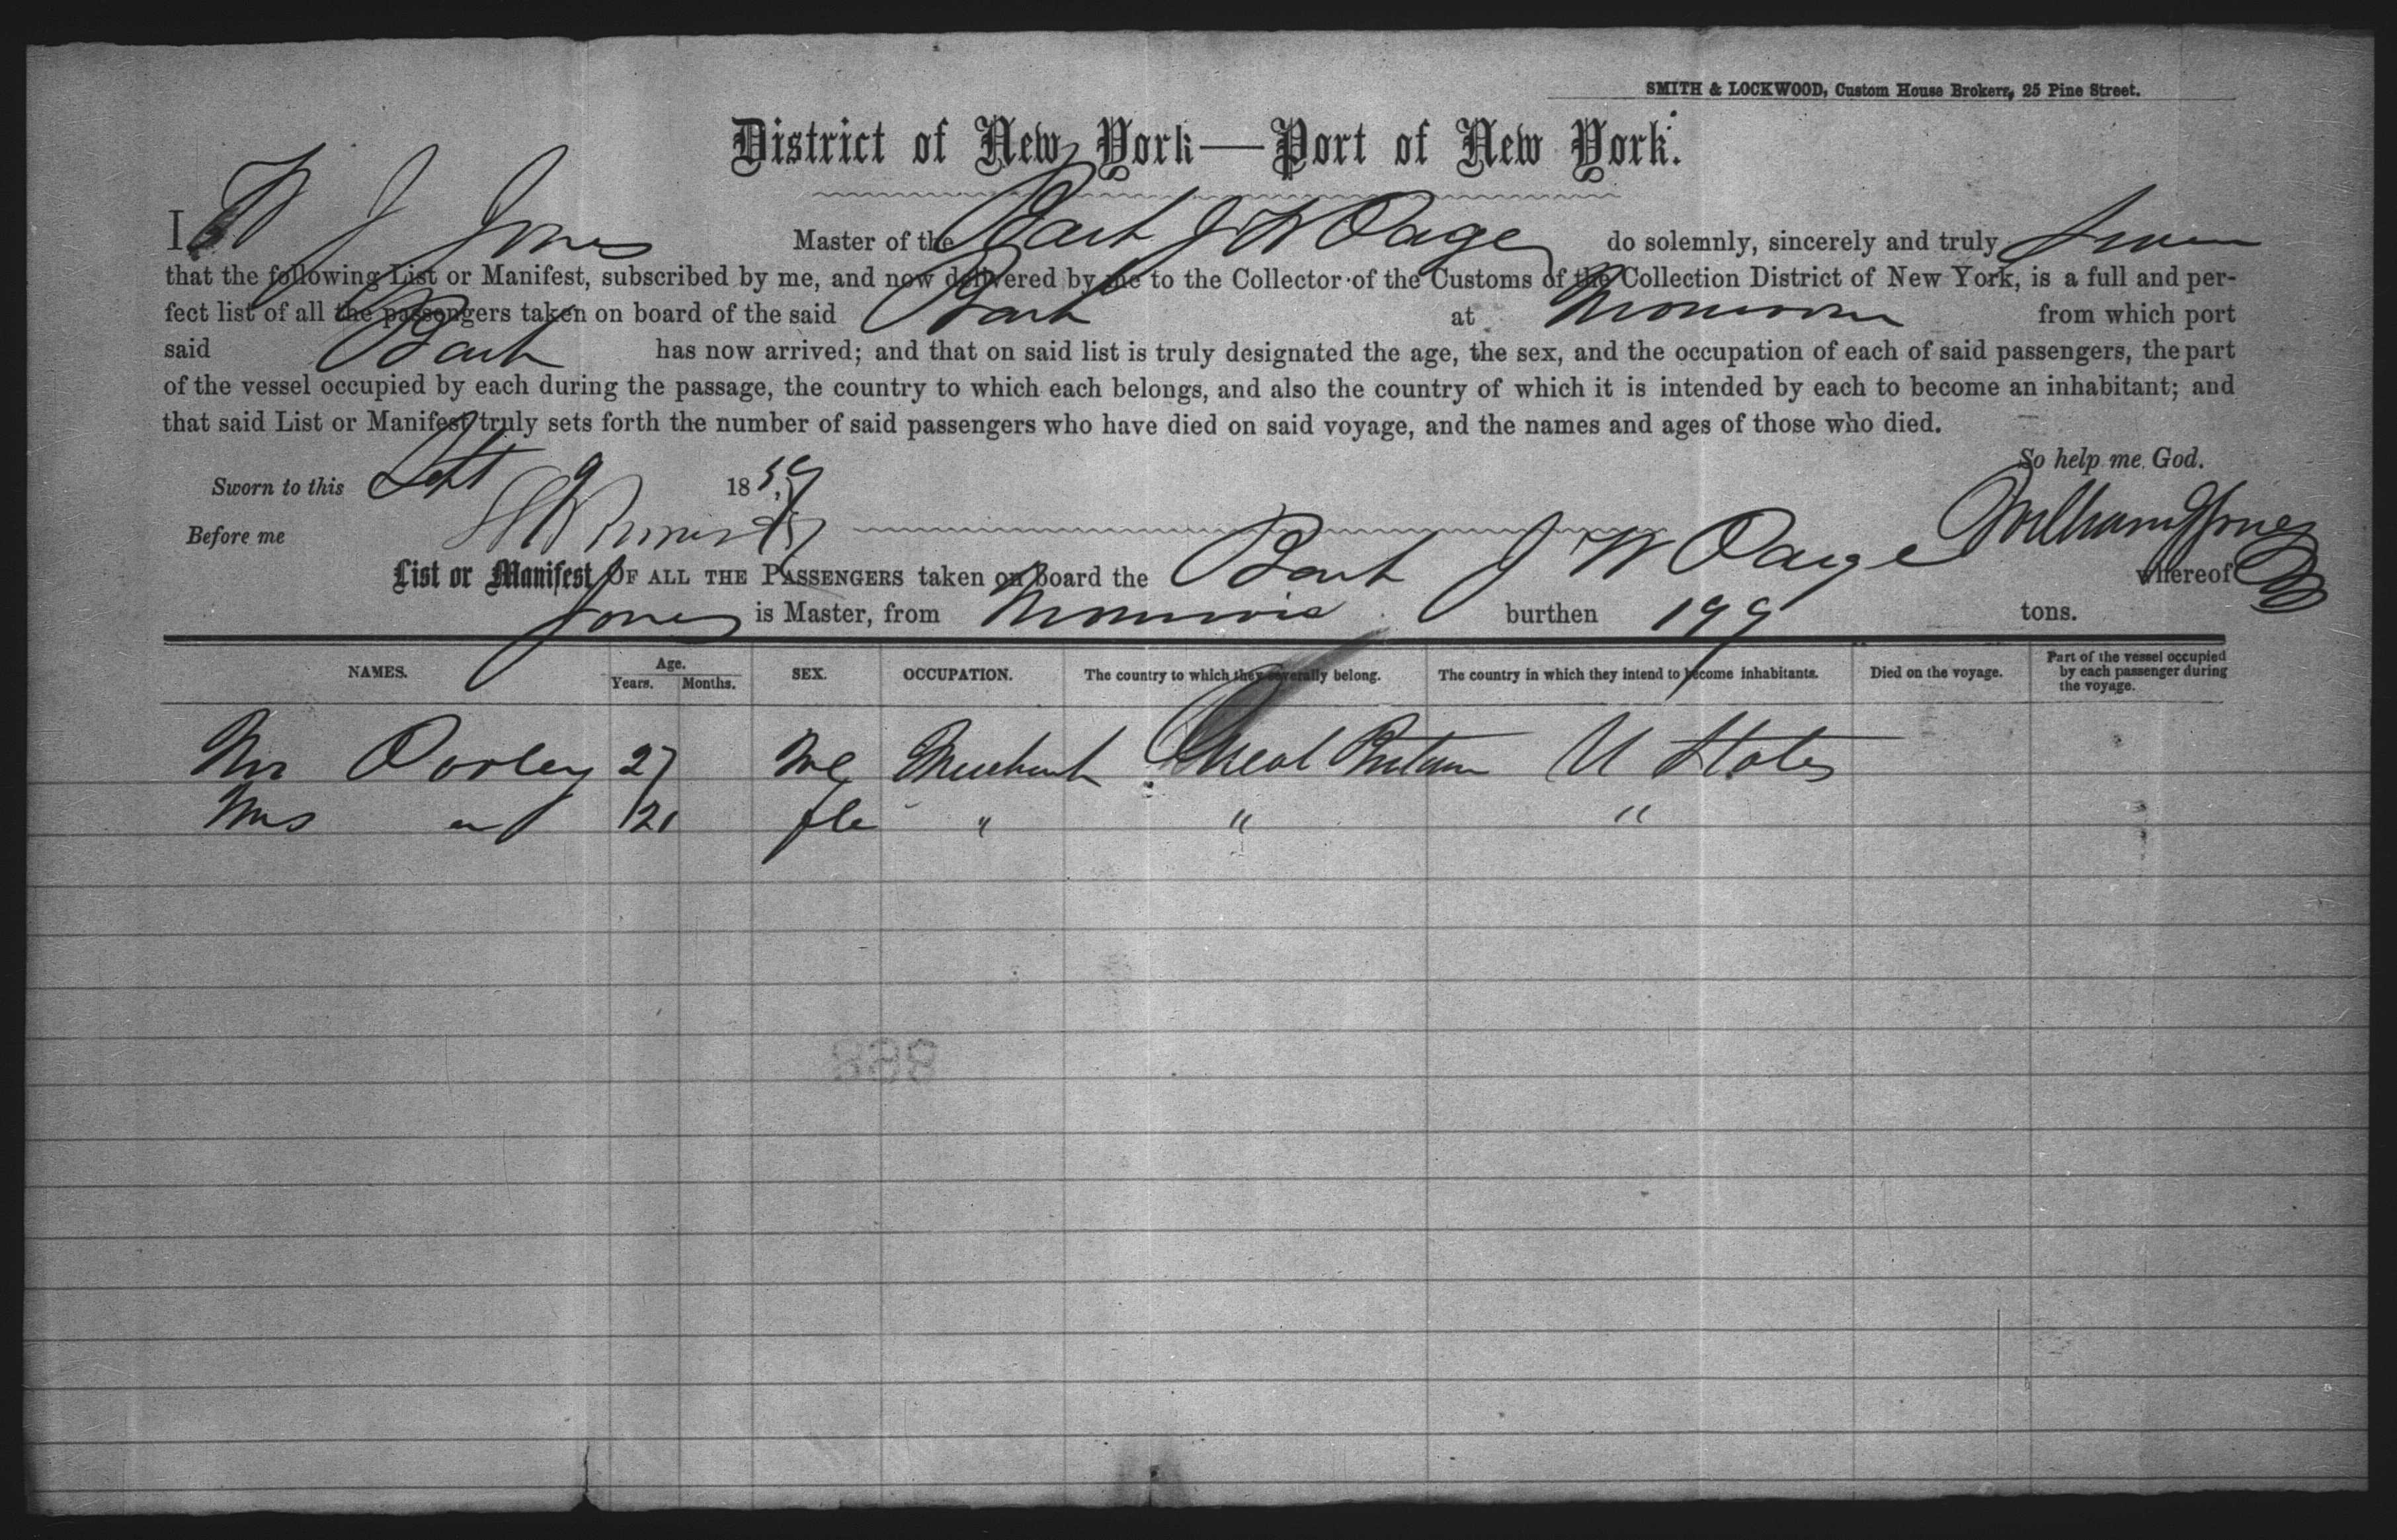 SMITH & LOCKWOOD, Custom House Brokers, 25 Pine Street.
District of New York—Port of New York.
I W J Jones Master of the Bark J W Paige do solemnly, sincerely and truly swear
that the following List or Manifest, subscribed by me, and now delivered by me to the Collector of the Customs of the Collection District of New York, is a full and per-
fect list of all the passengers taken on board of the said Bark at from which port
said Bark has now arrived; and that on said list is truly designated the age, the sex, and the occupation of each of said passengers, the part
of the vessel occupied by each during the passage, the country to which each belongs, and also the country of which it is intended by each to become an inhabitant; and
that said List or Manifest truly sets forth the number of said passengers who have died on said voyage, and the names and ages of those who died.
So help me God.
Sworn to this Sept 9 1859
Before me William J Jones
List or Manifest OF ALL THE PASSENGERS taken on board the Bark J W Paige whereof
Jones is Master, from burthen 199 tons.
NAMES. Age. Years. Months. SEX. OCCUPATION. The country to which they severally belong. The country in which they intend to become inhabitants. Died on the voyage. Part of the vessel occupied by each passenger during the voyage.
Mr 27 Me Merchant Great Britain U States
Mrs " 21 fle " " "